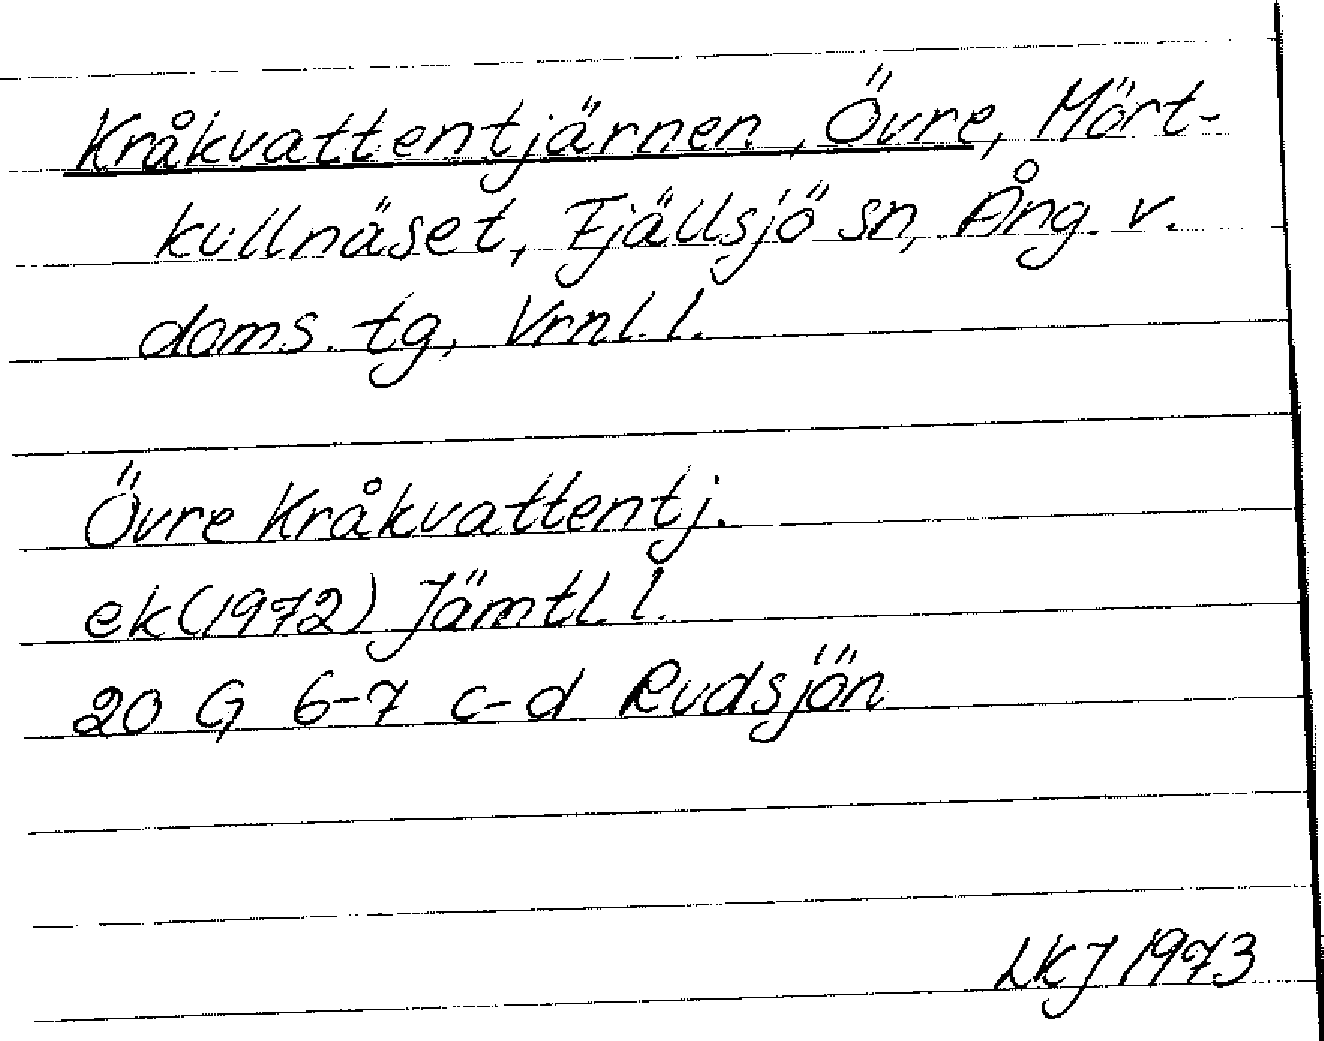 Kråkvattentjärnen, Övre, Mört-
kullnäset, Fjällsjö sn, Ång. v.
doms. tg, Vrnl. l.
Övre Kråkvattentj.
ek (1972) Jämtl. l.
20 G 6-7 c-d Rudsjön
LKJ 1973